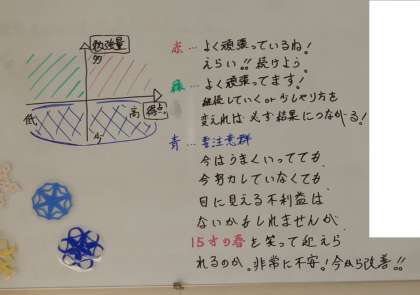 勉強量
多
低
高
得点
少
赤…よく頑張っているね!
えらい!!続けよう。
緑…よく頑張ってます!
継続していくor少しやり方を
変えれば必ず結果につながる!
青…要注意群
今はうまくいってても、
今努力していなくても、
目に見える不利益は
ないかもしれませんが、
15才の春を笑って迎えら
れるのか、非常に不安。!今から改善!!